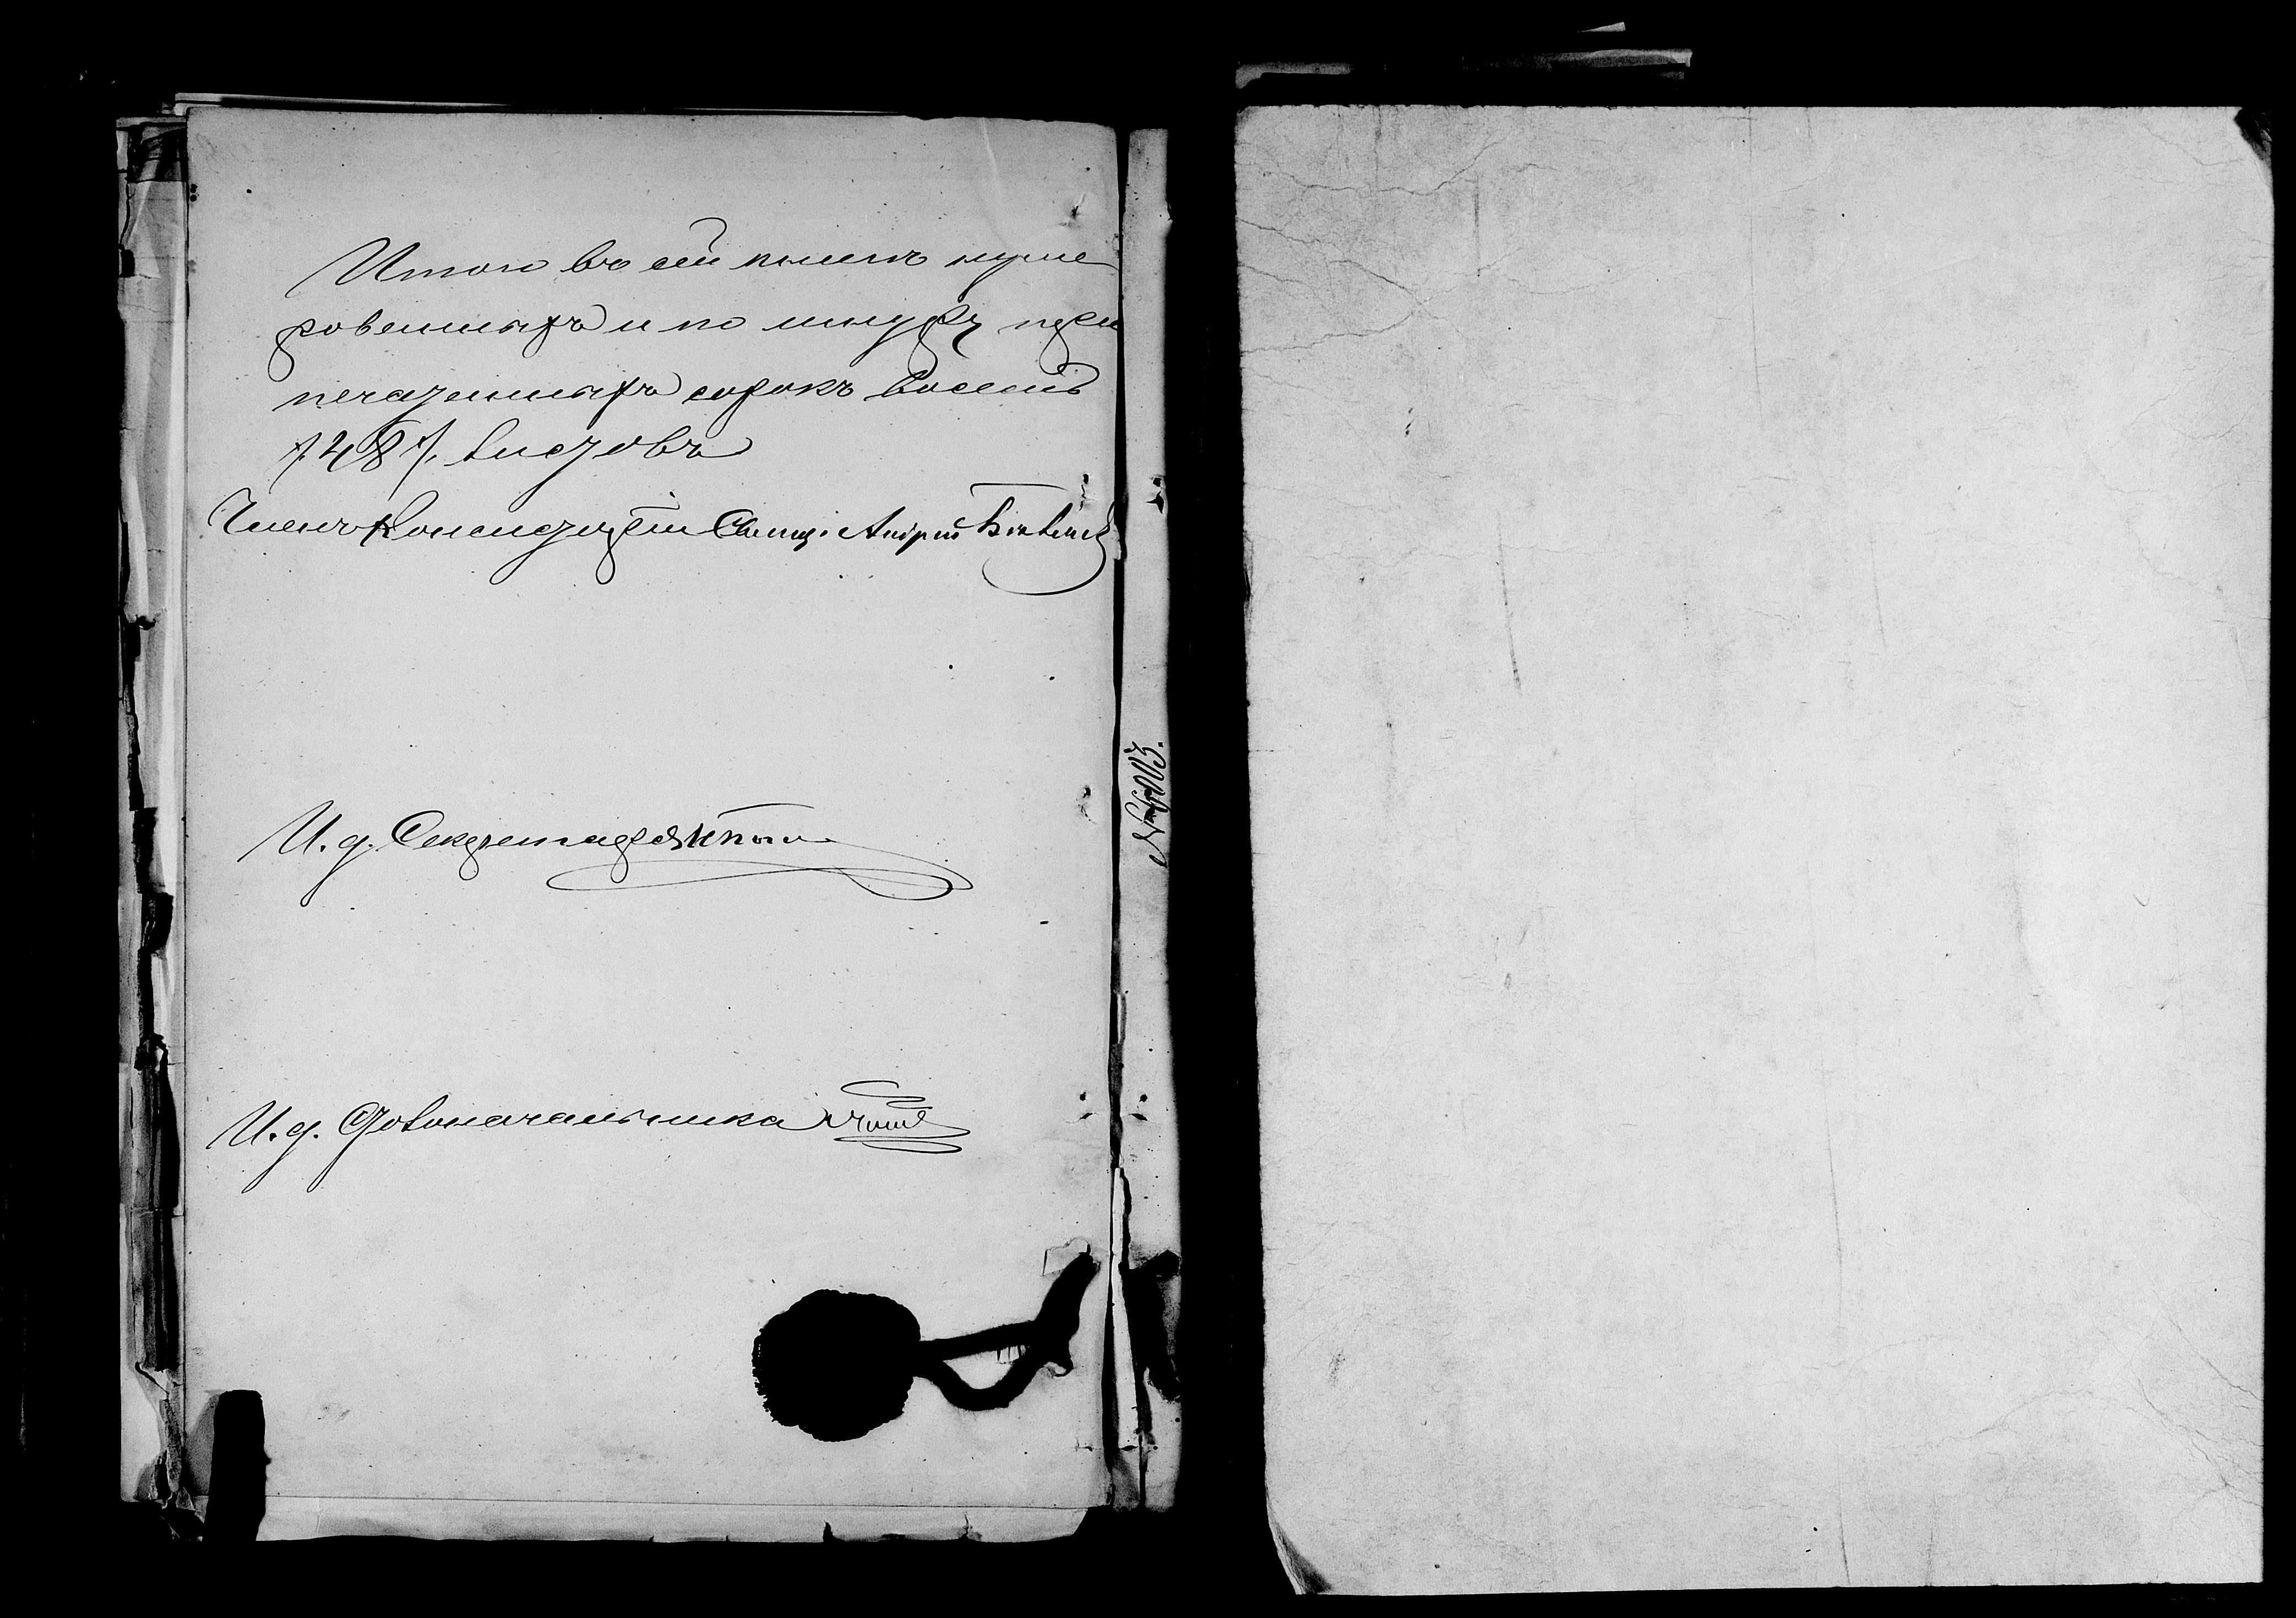 Итого въ сей книгѣ нуме
рованныхъ и по шнуру при
печатанныхъ сорокъ восемь
/48/. листовъ
Членъ Консисторіи Священ. Андрей
И. д. Секретаря
И. д. Столоначальника